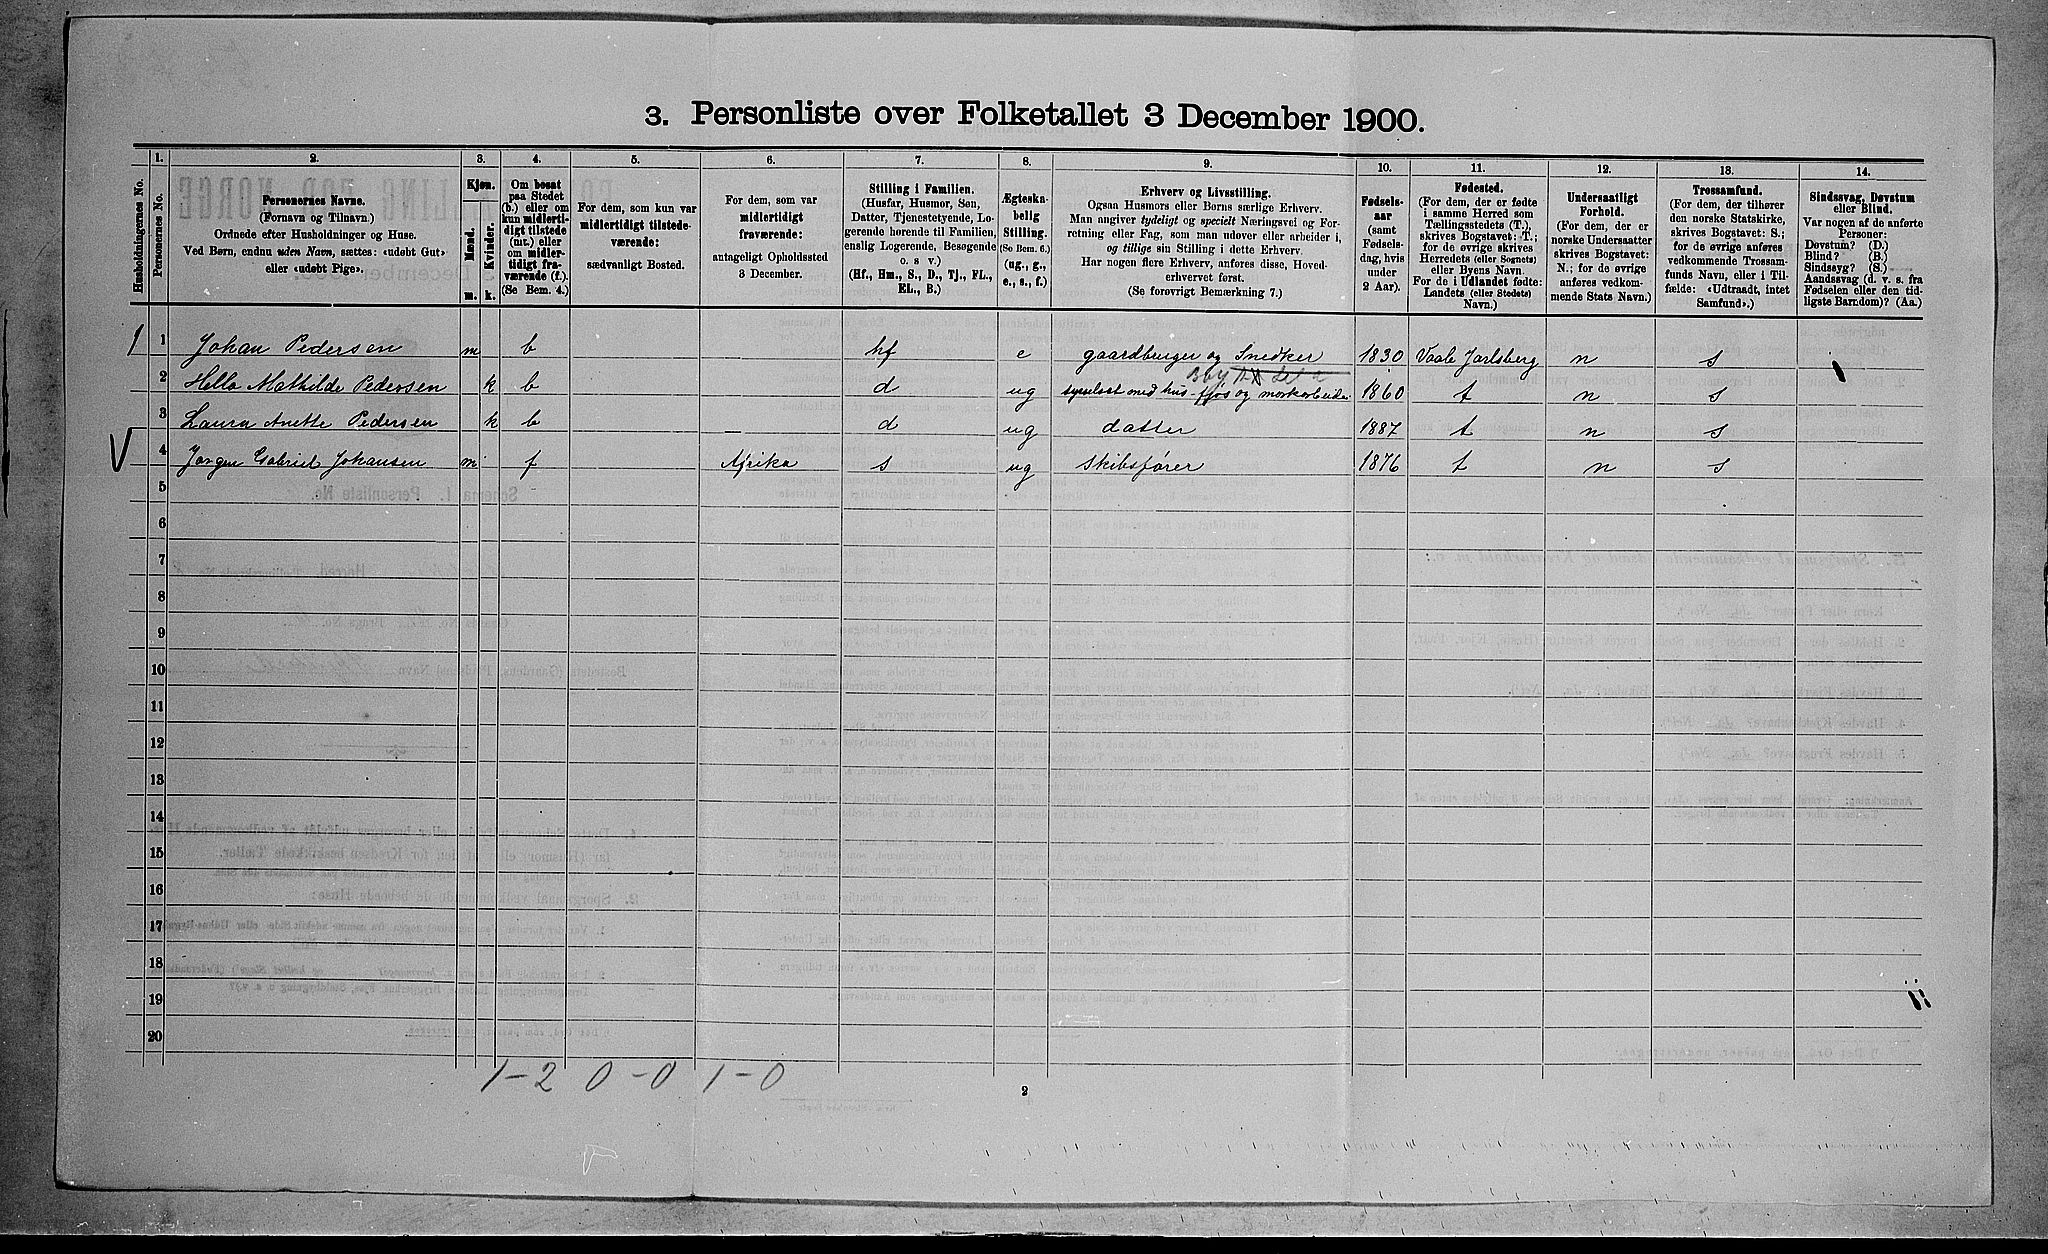 3. Personliste over Folketallet 3 December 1900.
Husholdningernes No.
1.
Personernes No.
2.
Personernes Navne.
(Fornavn og Tilnavn.)
Ordnede efter Husholdninger og Huse.
Ved Børn, endnu uden Navn, sættes: «udøbt Gut»
eller «udøbt Pige».
3.
Kjøn.
Mænd.
Kvinder.
m.
k.
4.
Om bosat
paa Stedet
(b.) eller om
kun midlerti-
digt tilstede
(mt.) eller
om midler-
tidigt fra-
værende (f.).
(Se Bem. 4.)
5.
For dem, som kun var
midlertidigt tilstede-
værende:
sædvanligt Bosted.
6.
For dem, som var
midlertidigt
fraværende:
antageligt Opholdssted
3 December.
7.
Stilling i Familien.
(Husfar, Husmor, Søn,
Datter, Tjenestetyende, Lo-
gerende hørende til Familien,
enslig Logerende, Besøgende
o. s v.)
(Hf., Hm., S., D., Tj., FL.,
EL., B.)
8.
Ægteska-
belig
Stilling.
(Se Bem. 6.)
(ug., g.,
e., s., f.)
9.
Erhverv og Livsstilling.
Ogsaa Husmors eller Børns særlige Erhverv.
Man angiver tydeligt og specielt Næringsvei og For-
retning eller Fag, som man udøver eller arbeider i,
og tillige sin Stilling i dette Erhverv.
Har nogen flere Erhverv, anføres disse, Hoved-
erhvervet først.
(Se forøvrigt Bemærkning 7.)
10.
Fødsels-
aar
(samt
Fødsels-
dag, hvis
under
2 Aar).
11.
Fødested.
(For dem, der er fødte
i samme Herred som
Tællingsstedets (T.),
skrives Bogstavet: T.;
for de øvrige skrives
Herredets (eller Sognets)
eller Byens Navn.
For de i Udlandet fødte:
Landets (eller Stedets)
Navn.)
12.
Undersaatligt
Forhold.
(For dem, der er
norske Undersaatter
skrives Bogstavet:
N.; for de øvrige
anføres vedkom-
mende Stats Navn.)
13.
Trossamfund.
(For dem, der tilhører
den norske Statskirke,
skrives Bogstavet: S.;
for de øvrige anføres
vedkommende Trossam-
funds Navn, eller i Til-
fælde: «Udtraadt, intet
Samfund».)
14.
Sindssvag, Døvstum
eller Blind.
Var nogen af de anførte
Personer:
Døvstum? (D.)
Blind? (B.)
Sindssyg? (S.)
Aandssvag (d. v. s. fra
Fødselen eller den tid-
ligste Barndom)? (Aa.)
1 1 Johan Pedersen m b hf e gaardbruger og Snedker 1830 Vaale Jarlsberg n s
2 Hella Mathilde Pedersen k b d ug sysselsat med hus- fjøs og markarbeide 1860 t n s
3 Laura Anette Pedersen k b d ug datter 1887 t n s
V 4 Jørgen Gabriel Johansen m f Afrika s ug Skibsfører 1876 t n s
5
6
7
8
9
10
11
12
13
14
15
16
17
18
19
20
1-2 0-0 1-0
2